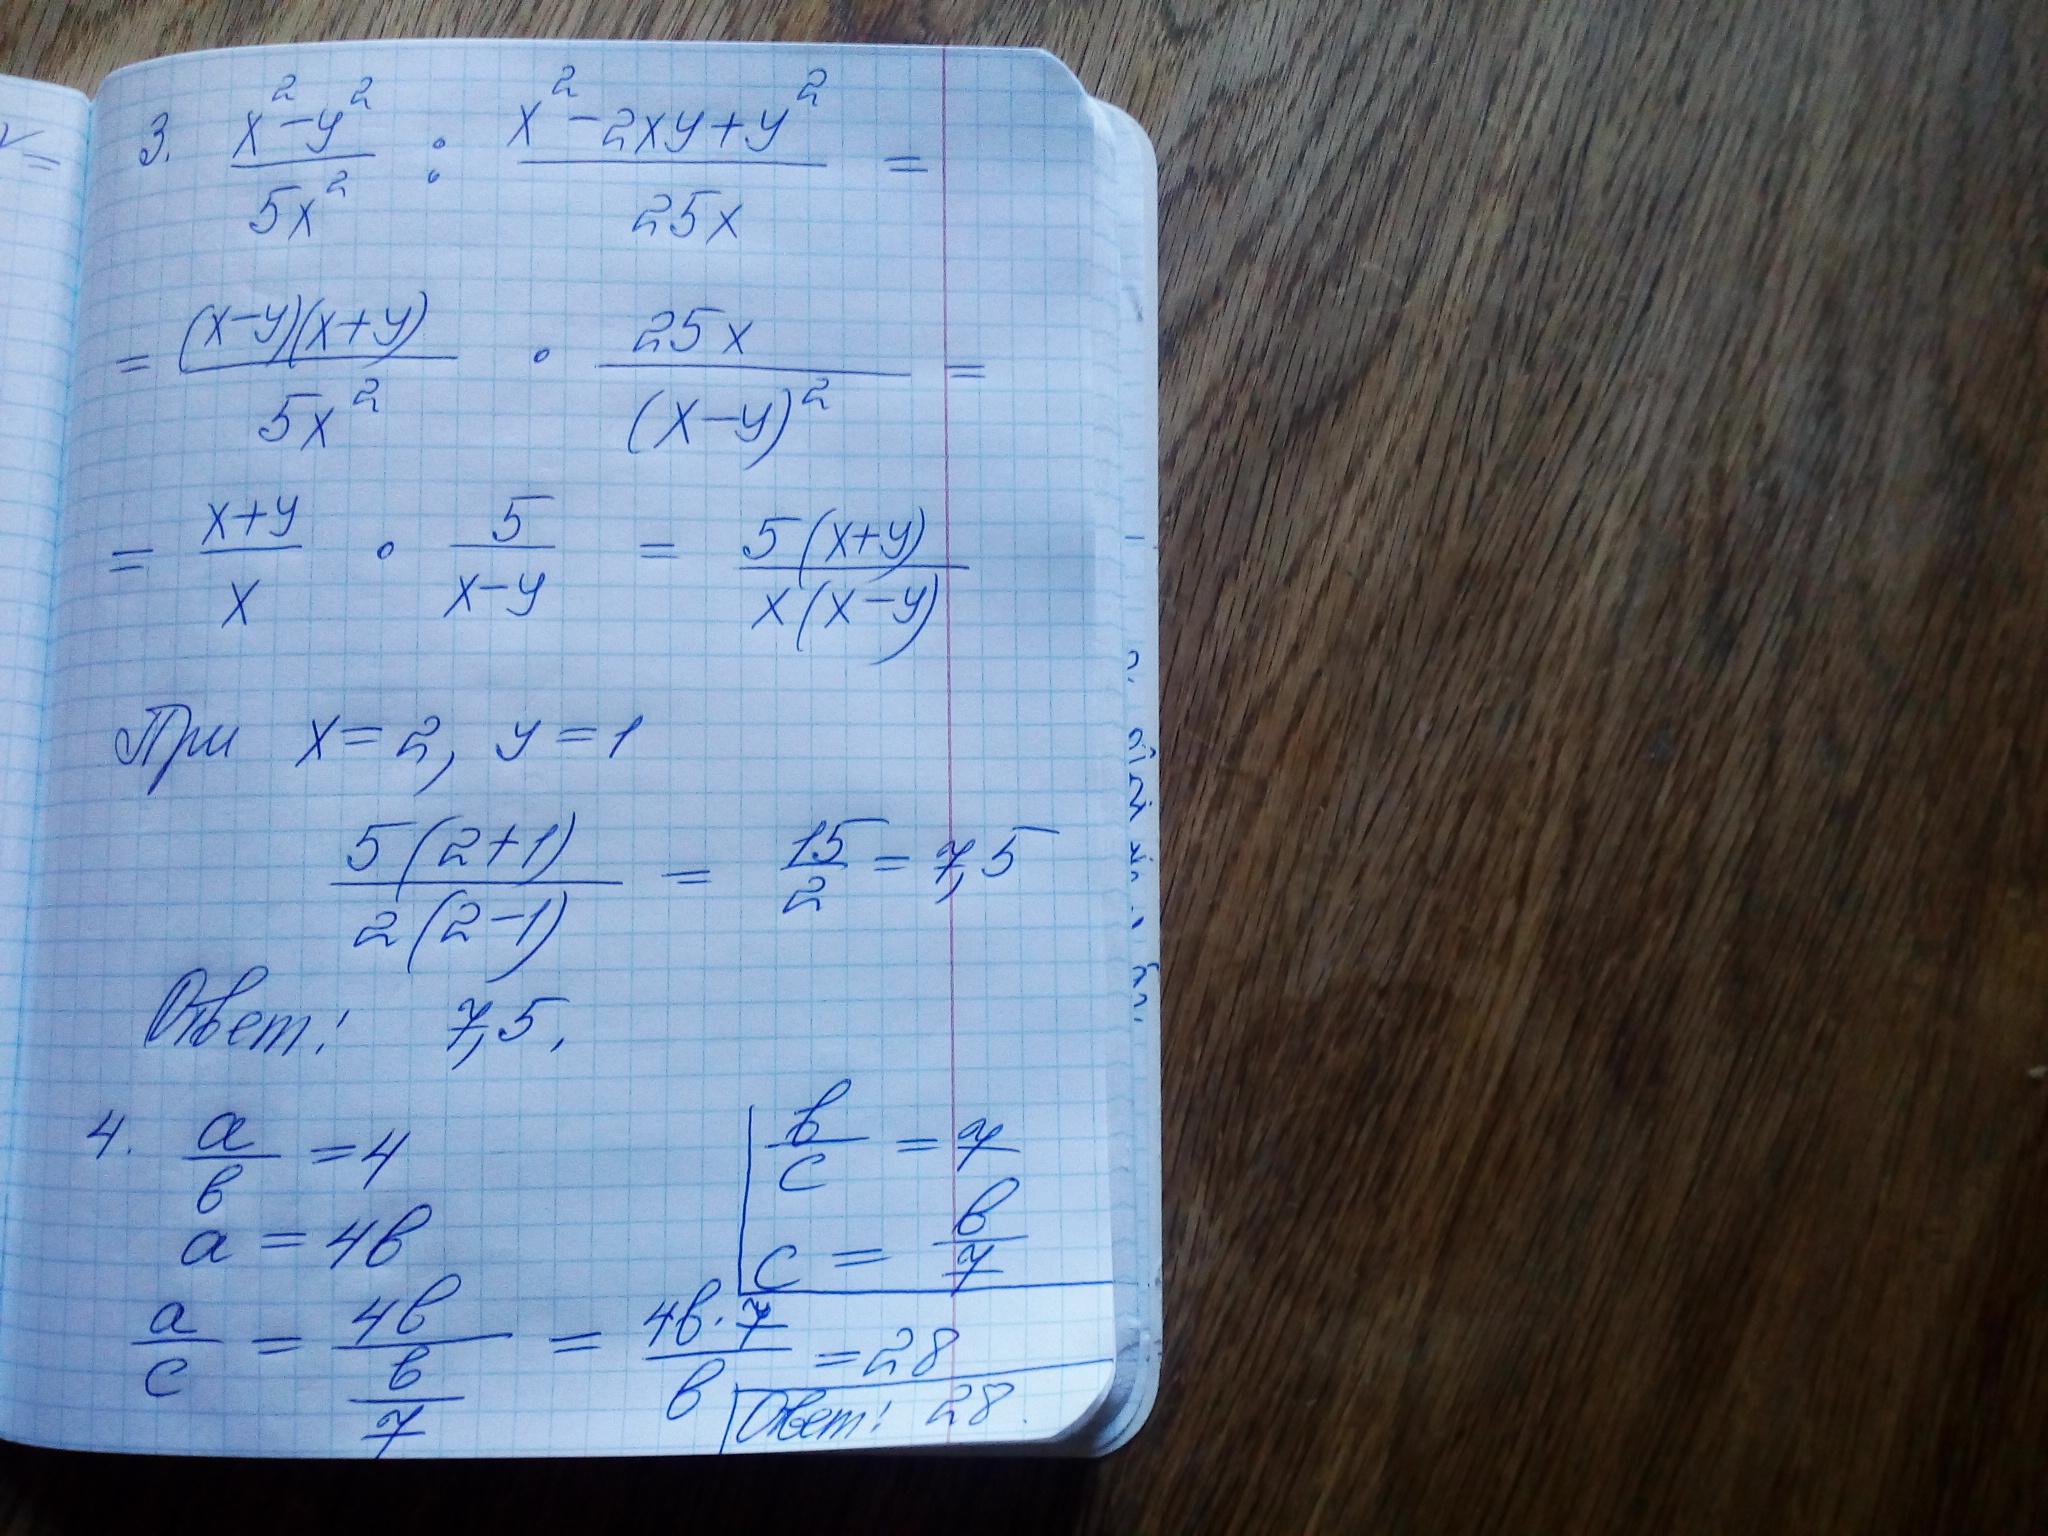 3. (x²-y²)/(5x²) : (x²-2xy+y²)/(25x) =
= ((x-y)(x+y))/(5x²) · (25x)/((x-y)²) =
= (x+y)/x · 5/(x-y) = (5(x+y))/(x(x-y))
При x=2, y=1
(5(2+1))/(2(2-1)) = 15/2 = 7,5
Ответ: 7,5.
4. a/в = 4
a = 4в
в/c = 7
c = в/7
a/c = 4в/(в/7) = (4в·7)/в = 28
Ответ: 28.